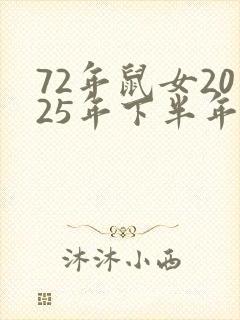 72年鼠女20
25年下半年
沐沐小西